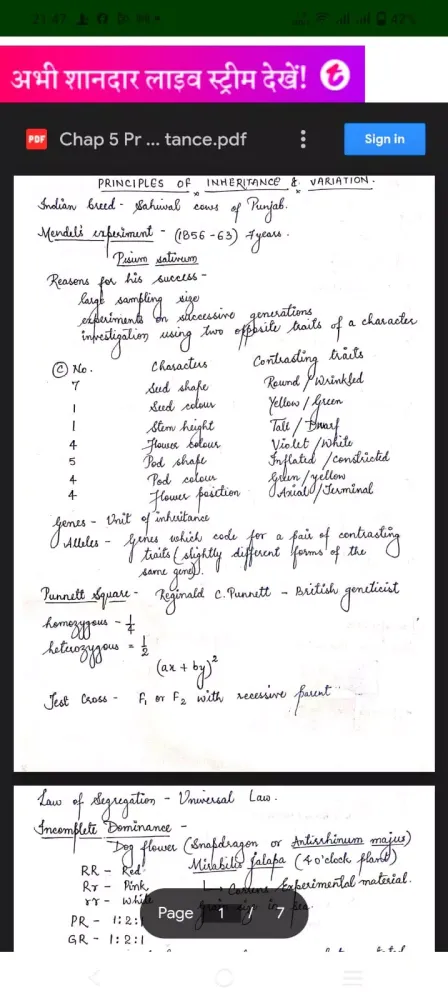 21:47
42%
अभी शानदार लाइव स्ट्रीम देखें!
PDF Chap 5 Pr ... tance.pdf Sign in
PRINCIPLES OF INHERITANCE & VARIATION.
Indian breed - Sahiwal cows of Punjab.
Mendel's experiment - (1856-63) 7 years.
Pisum sativum
Reasons for his success -
large sampling size
experiments on successive generations
investigation using two opposite traits of a character
(C) No. Characters Contrasting traits
7 Seed shape Round / Wrinkled
1 Seed colour Yellow / Green
1 Stem height Tall / Dwarf
4 Flower colour Violet / White
5 Pod shape Inflated / constricted
4 Pod colour Green / yellow
4 Flower position Axial / Terminal
Genes - Unit of inheritance
Alleles - Genes which code for a pair of contrasting
traits (slightly different forms of the
same gene).
Punnett Square - Reginald C. Punnett - British geneticist
homozygous - 1/4
heterozygous = 1/2
(ax + by)²
Test Cross - F₁ or F₂ with recessive parent
Law of Segregation - Universal Law.
Incomplete Dominance -
Dog flower (Snapdragon or Antirrhinum majus)
RR - Red Mirabilis jalapa (4 o'clock plant)
Rr - Pink Correns Experimental material.
rr - White
Page 1 / 7
PR - 1:2:1
GR - 1:2:1